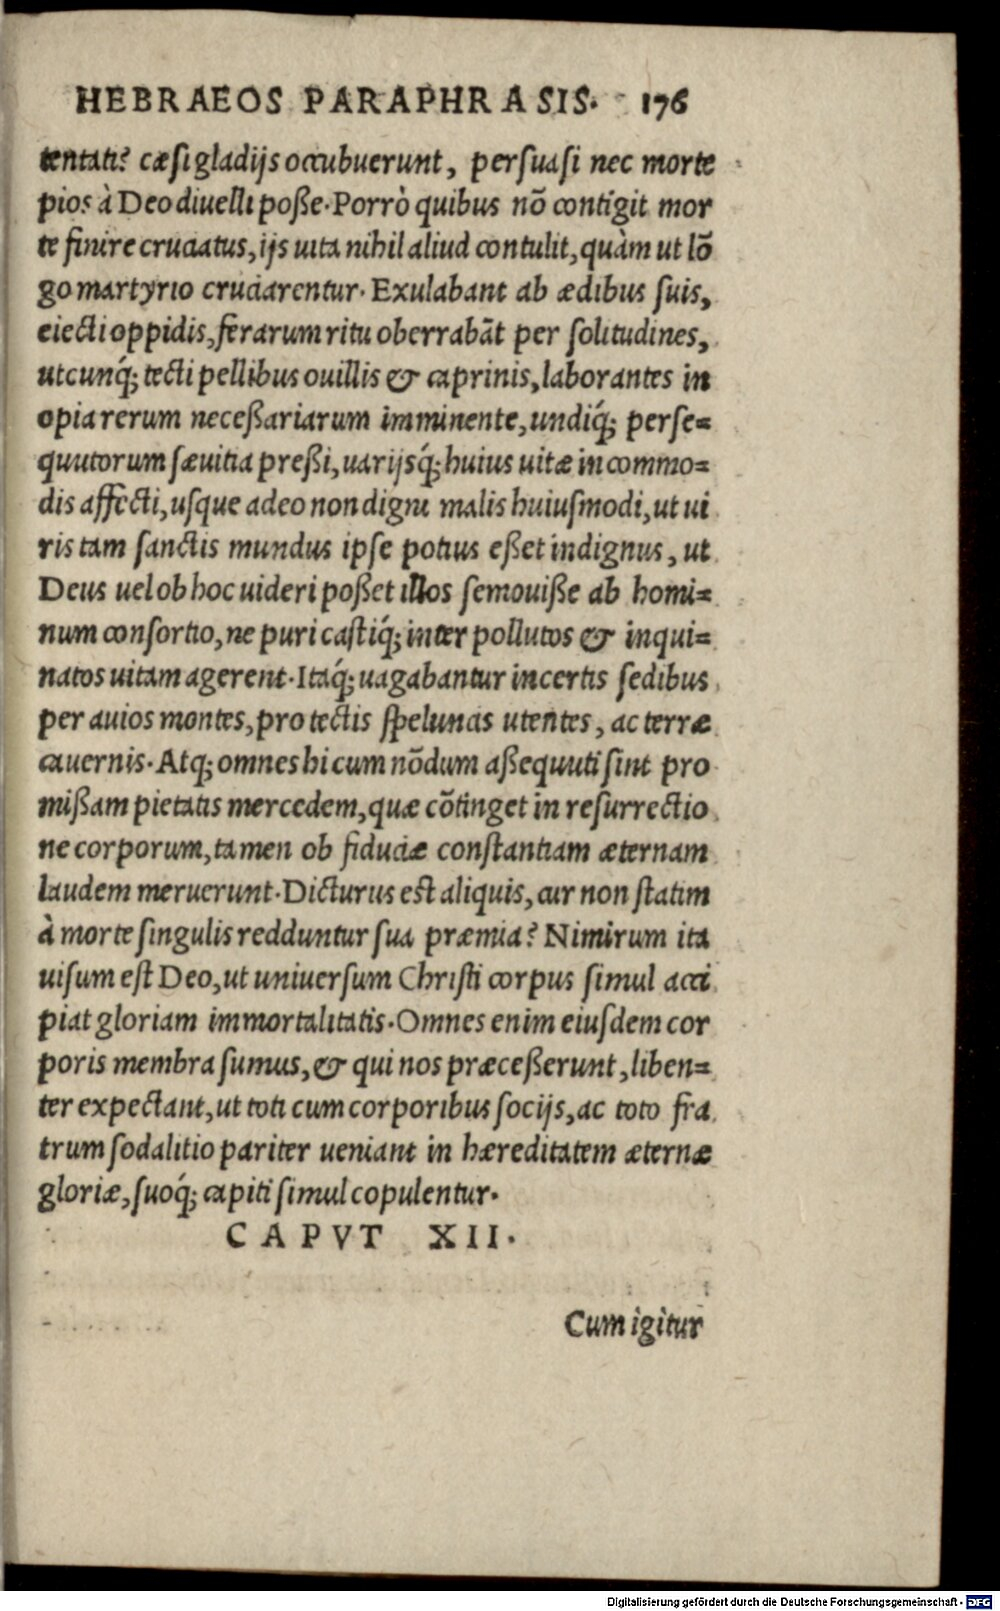 HEBRAEOS PARAPHRASIS. 176
tentati? cæsi gladijs occubuerunt, persuasi nec morte
pios à Deo diuelli poße. Porrò quibus nō contigit mor
te finire cruciatus, ijs uita nihil aliud contulit, quàm ut lō
go martyrio cruciarentur. Exulabant ab ædibus suis,
eiecti oppidis, ferarum ritu oberrabāt per solitudines,
utcunq́; tecti pellibus ouillis & caprinis, laborantes in
opia rerum neceßariarum imminente, undiq́; perse=
quutorum sæuitia preßi, uarijsq́; huius uitæ incommo=
dis affecti, usque adeo non digni malis huiusmodi, ut ui
ris tam sanctis mundus ipse potius eßet indignus, ut
Deus uel ob hoc uideri poßet illos semouiße ab homi=
num consortio, ne puri castiq́; inter pollutos & inqui=
natos uitam agerent. Itaq́; uagabantur incertis sedibus
per auios montes, pro tectis speluncis utentes, ac terræ
cauernis. Atq; omnes hi cum nōdum aßequuti sint pro
mißam pietatis mercedem, quæ cōtinget in resurrectio
ne corporum, tamen ob fiduciæ constantiam æternam
laudem meruerunt. Dicturus est aliquis, cur non statim
à morte singulis redduntur sua præmia? Nimirum ita
uisum est Deo, ut uniuersum Christi corpus simul acci
piat gloriam immortalitatis. Omnes enim eiusdem cor
poris membra sumus, & qui nos præceßerunt, liben=
ter expectant, ut toti cum corporibus socijs, ac toto fra
trum sodalitio pariter ueniant in hæreditatem æternæ
gloriæ, suoq́; capiti simul copulentur.
CAPVT XII.
Cum igitur
Digitalisierung gefördert durch die Deutsche Forschungsgemeinschaft - DFG